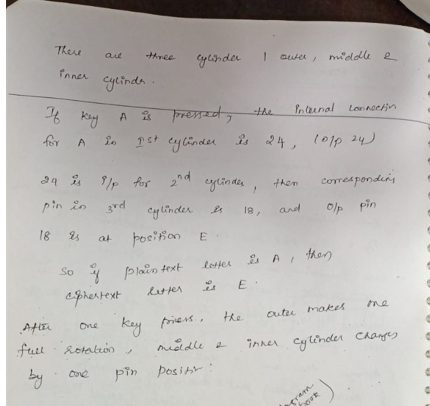 There are three cylinder 1 outer, middle &
inner cylinder.
If key A is pressed, the internal connection
for A in 1st cylinder is 24, (o/p 24)
24 is i/p for 2nd cylinder, then corresponding
pin in 3rd cylinder is 18, and o/p pin
18 is at position E.
So if plaintext letter is A, then
ciphertext letter is E.
After one key press, the outer makes one
full rotation, middle & inner cylinder changes
by one pin position.
book)